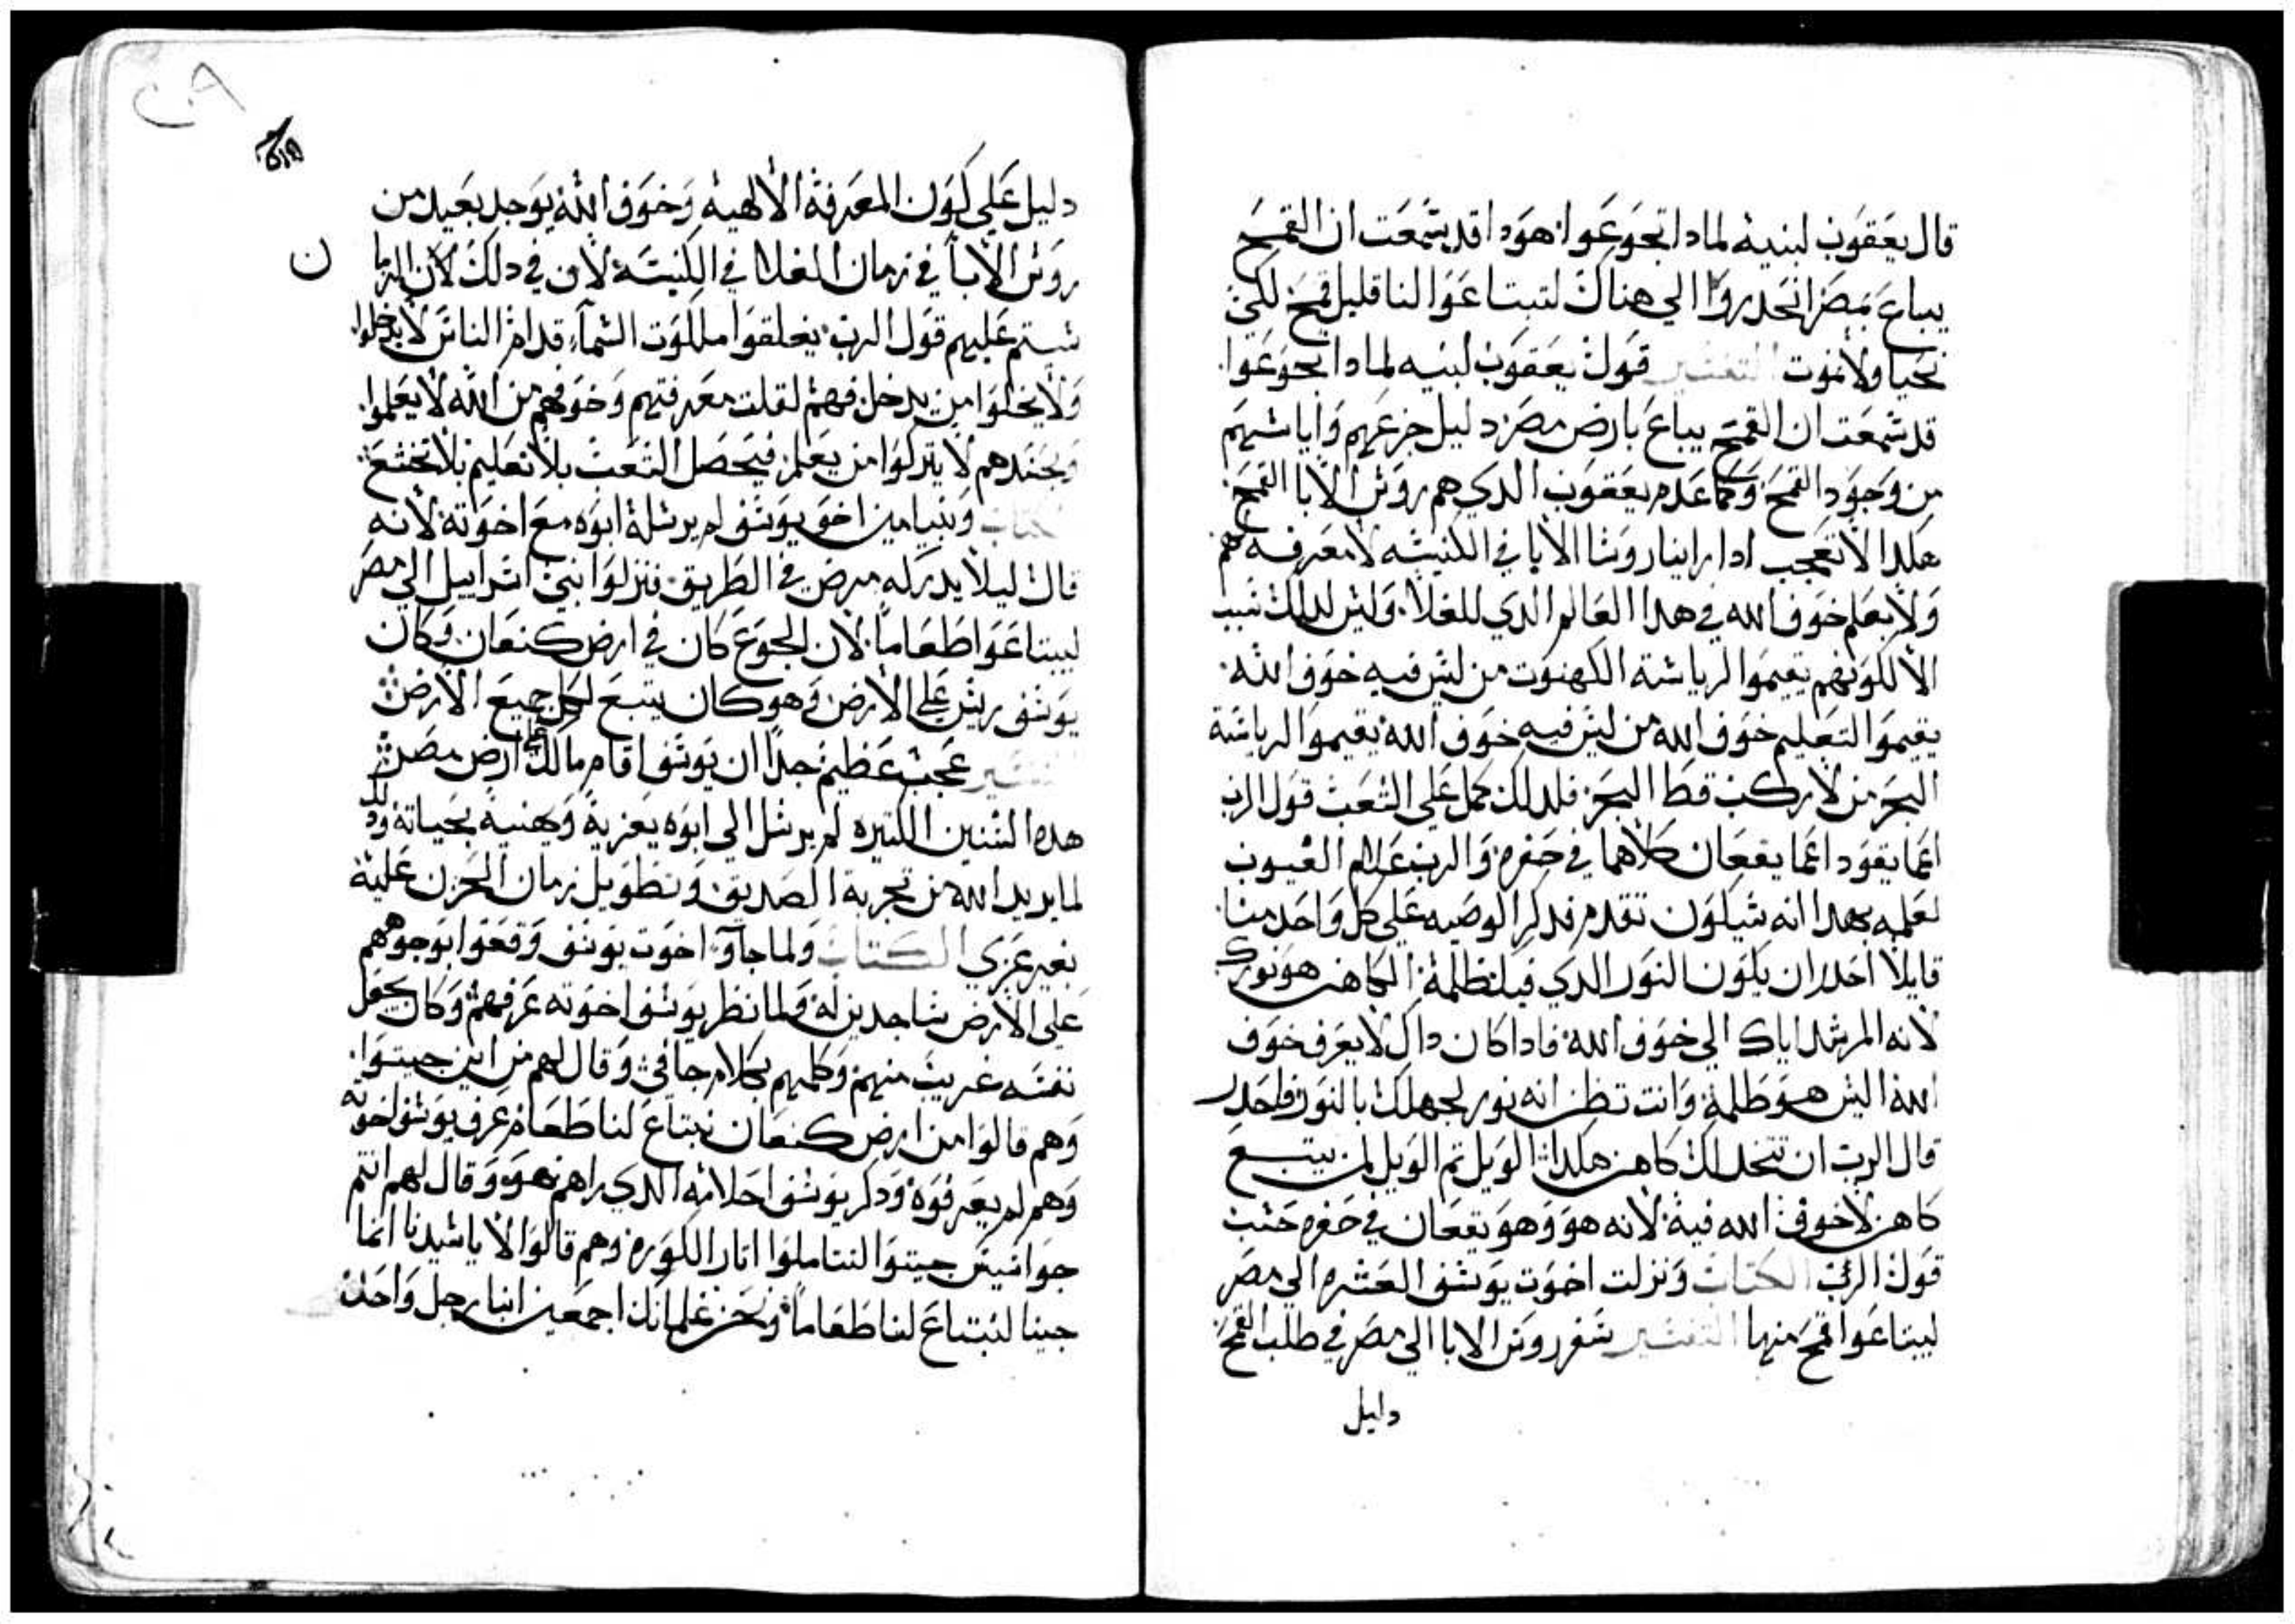 قال يعقوب لبنيه لمادا تجوعوا هودا قد سمعت ان القمح
يباع بمصر انحدروا الي هناك لتبتاعوا لنا قليل قمح لكي
نحيا ولا نموت التفسير قول يعقوب لبنيه لمادا تجوعوا
قد سمعت ان القمح يباع بارض مصر دليل جزعهم واياسهم
من وجود القمح وكما عدم يعقوب الدي هم روس الابا القمح
هكدا لا تعجب ادا راينا روسا الابا في الكنيسه لا معرفه لهم
ولا بعلم خوف الله في هدا العالم الدي للغلا وليس لدلك سبب
الا لكونهم يقيموا لرياسة الكهنوت من ليس فيه خوف الله
يقيموا لتعليم خوف الله من ليس فيه خوف الله يقيموا لرياسة
البحر من لا ركب قط البحر فلدلك كمل علي الشعب قول الرب
اعما يقود اعما يقعان كلاهما في حفره والرب علام الغيوب
لعلمه بهدا انه سيكون تقدم فدكر الوصيه علي كل واحد منا
قايلا احدر ان يكون النور الدي فيك ظلمة الكاهن هو نورك
لانه المرشد اياك الي خوف الله فادا كان داك لا يعرف خوف
الله اليس هو ظلمة وانت تظن انه نور لجهلك بالنور فاحدر
قال الرب ان تتخد لك كاهن هكدا الويل تم الويل لمن يتبع
كاهن لا خوف الله فيه لانه هو وهو يقعان في حفره حسب
قول الرب الكتاب ونزلت اخوت يوسف العشره الي مصر
ليبتاعوا قمح منها التفسير سفر روس الابا الي مصر في طلب القمح
دليل
دليل علي كون المعرفة الالهيه وخوف الله يوجد بعيد من
روس الابا في زمان الغلا في الكنيسه لان في دلك الزمان
يتم عليهم قول الرب يغلقوا ملكوت السماء قدام الناس لا يدخلوا
ولا يخلوا من يدخل فهم لقلت معرفتهم وخوفهم من الله لا يعلموا
وبحسدهم لا يتركوا من يعلم فيحصل الشعب بلا تعليم بلا تخشع
الكتاب وبنيامين اخو يوسف لم يرسلة ابوه مع اخوته لانه
قال ليلا يدركه مرض في الطريق فنزلوا بني اسراييل الي مصر
ليبتاعوا طعاما لان الجوع كان في ارض كنعان وكان
يوسف ريس علي الارض وهو كان يبيع لكل جميع الارض
التفسير عجب عظيم جدا ان يوسف اقام مالك علي ارض مصر
هده السنين الكتيره لم يرسل الي ابوه يعزيه ويهنيه بحياته ودلك
لما يريد الله من تجربة الصديق وتطويل زمان الحزن علية
بغير عزي الكتاب ولما جاو اخوت يوسف وقعوا بوجوههم
علي الارض ساجدين له ولما نظر يوسف اخوته عرفهم وكان يجعل
نفسه غريب منهم وكلمهم بكلام جافي وقال لهم من اين جيتوا
وهم قالوا من ارض كنعان نبتاع لنا طعام عرف يوسف اخوته
وهم لم يعرفوه ودكر يوسف احلامه الدي راهم هو وقال لهم انتم
جواسيس جيتوا لتتاملوا اتار الكوره وهم قالوا لا يا سيدنا انما
جينا لنبتاع لنا طعاما ونحن غلمانك اجمعين ابنا رجل واحد